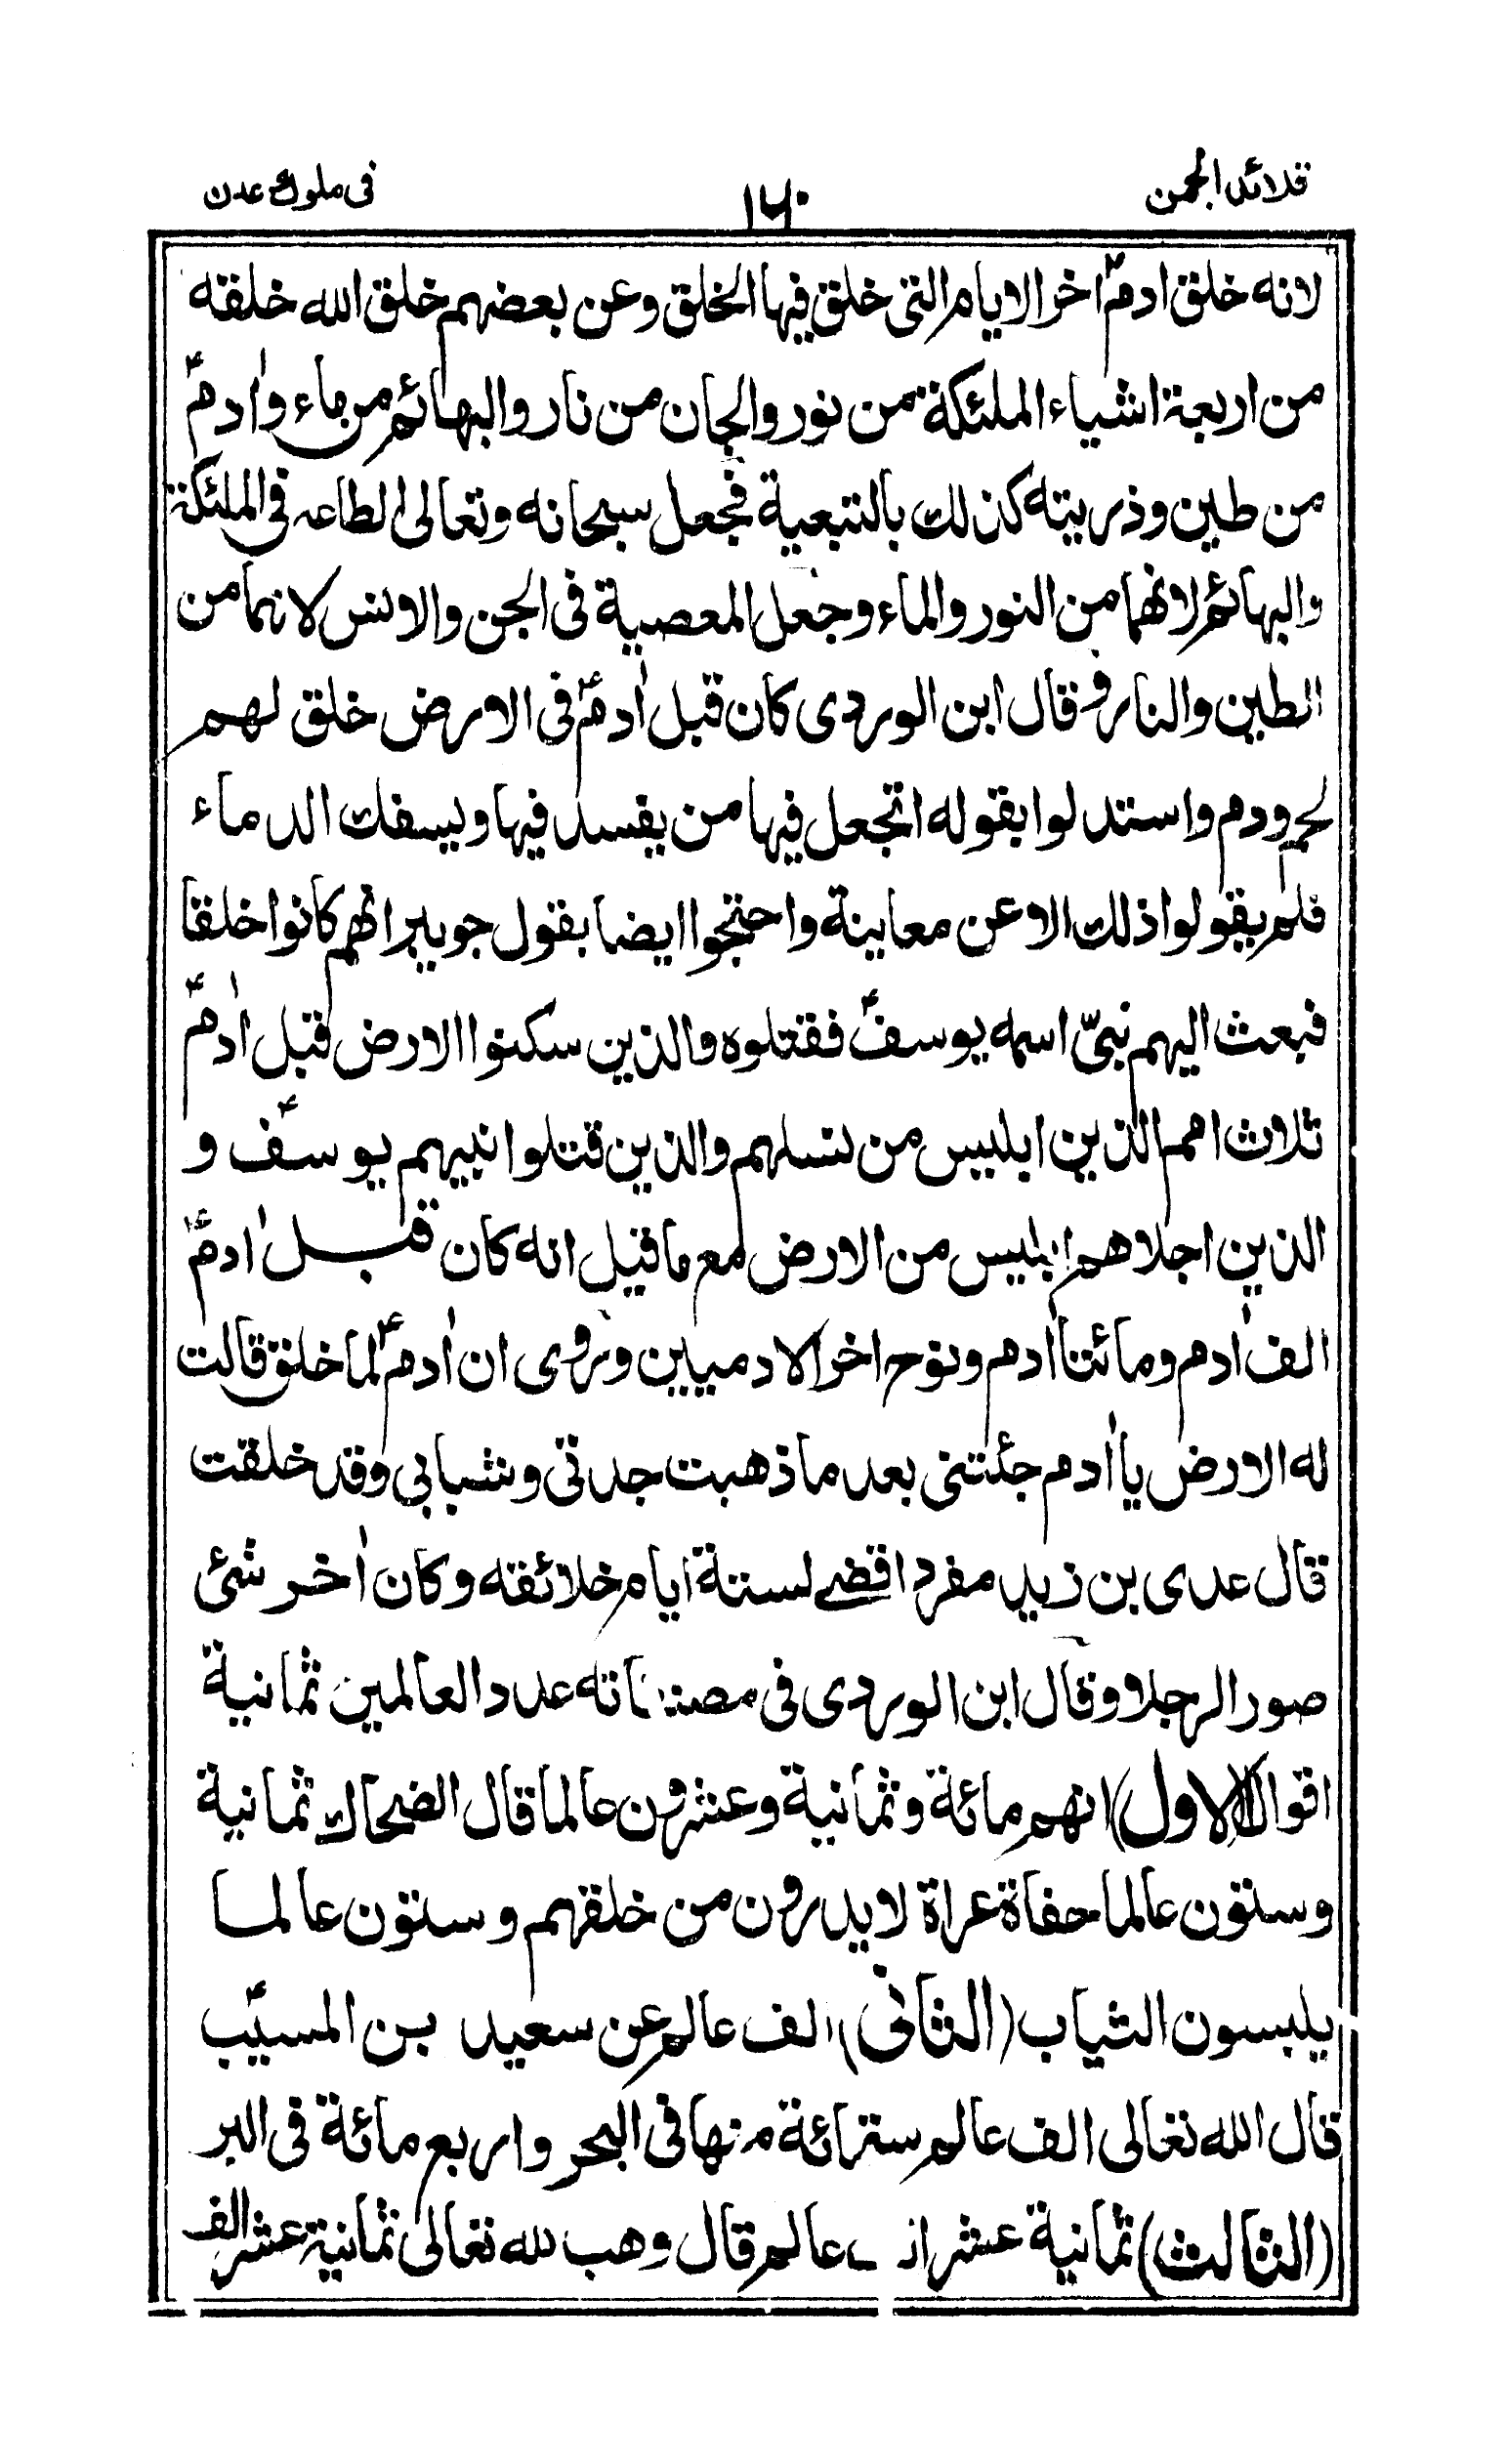 قلائد الجمن
١٦٠
فى ملوك عدن
لانه خلق ادمؑ اخر الايام التى خلق فيها الخلق وعن بعضهم خلق الله خلقه
من اربعة اشياء الملئكة من نور والجان من نار والبهائم من ماء وادمؑ
من طين وذريته كذلك بالتبعية فجعل سبحانه وتعالى الطاعه فى الملئكة
والبهائم لانهما من النور والماء وجعل المعصية فى الجن والانس لانهما من
الطين والنار وقال ابن الوردى كان قبل ادمؑ فى الارض خلق لهم
لحم ودم واستدلوا بقوله اتجعل فيها من يفسد فيها ويسفك الدماء
فلم يقولوا ذلك الا عن معاينة واحتجوا ايضا بقول جويبر انهم كانوا خلقا
فبعث اليهم نبىّ اسمه يوسفؑ فقتلوه والذين سكنوا الارض قبل ادمؑ
ثلاث امم الذين ابليس من نسلهم والذين قتلوا نبيهم يوسفؑ و
الذين اجلاهم ابليس من الارض مع ما قيل انه كان قبل ادمؑ
الف ادم ومائتا ادم ونوح اخر الادميين وروى ان ادمؑ لما خلق قالت
له الارض يا ادم جئتنى بعد ما ذهبت جدتى وشبابى وقد خلقت
قال عدى بن زيد مفردا قضے لستة ايام خلائقه وكان اخر شئ
صور الرجلا وقال ابن الوردى فى مصنفاته عدد العالمين ثمانية
اقوال (الاول) انهم مائة وثمانية وعشرون عالما قال الضحاك ثمانية
وستون عالما حفاة عراة لا يدرون من خلقهم وستون عالما
يلبسون الثياب (الثانى) الف عالم عن سعيد بن المسيّب
قال الله تعالى الف عالم ستمائة منها فى البحر واربع مائة فى البر
(الثالث) ثمانية عشر الف عالم قال وهب لله تعالى ثمانية عشر الف